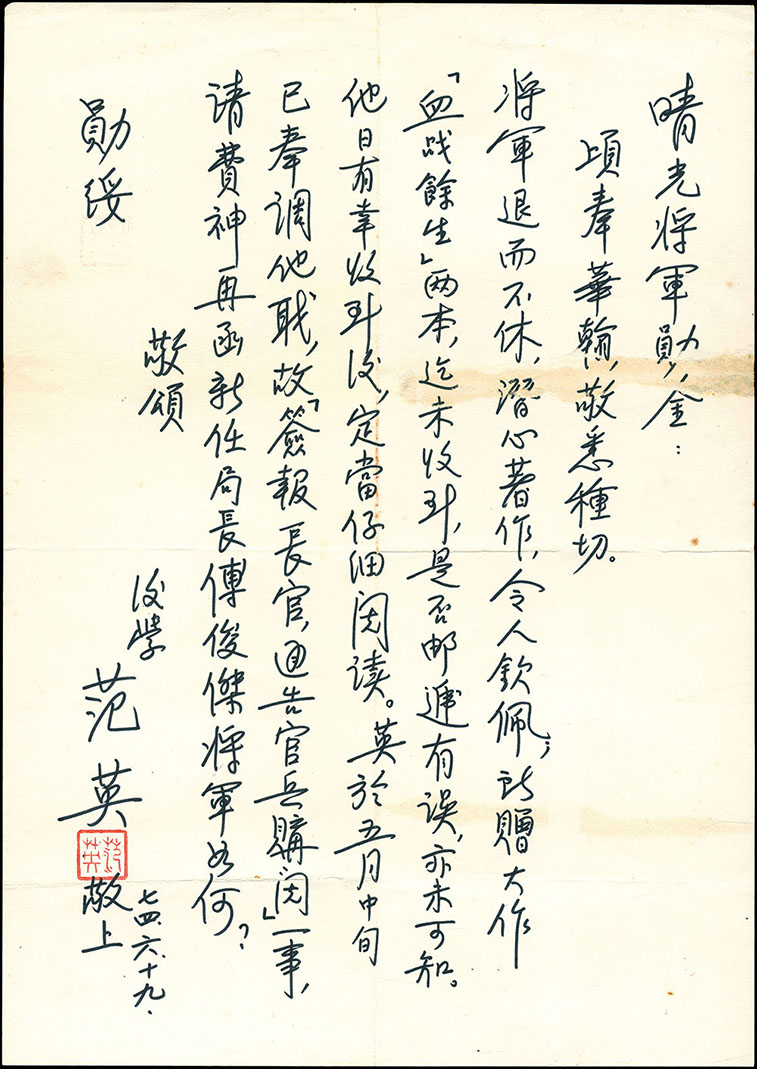 晴光将軍勛鉴：
頃奉華翰，敬悉種切。
将軍退而不休，潛心著作，令人欽佩；所贈大作
「血战餘生」两本，迄未收到，是否邮遞有误，亦未可知。
他日有幸收到後，定當仔细阅读。英於五月中旬
已奉调他职，故「簽報長官，通告官兵購阅」一事，
请費神再函新任局長傅俊傑将軍如何？
敬頌
勛绥
後学 范英 敬上
范英
七四、六、十九、